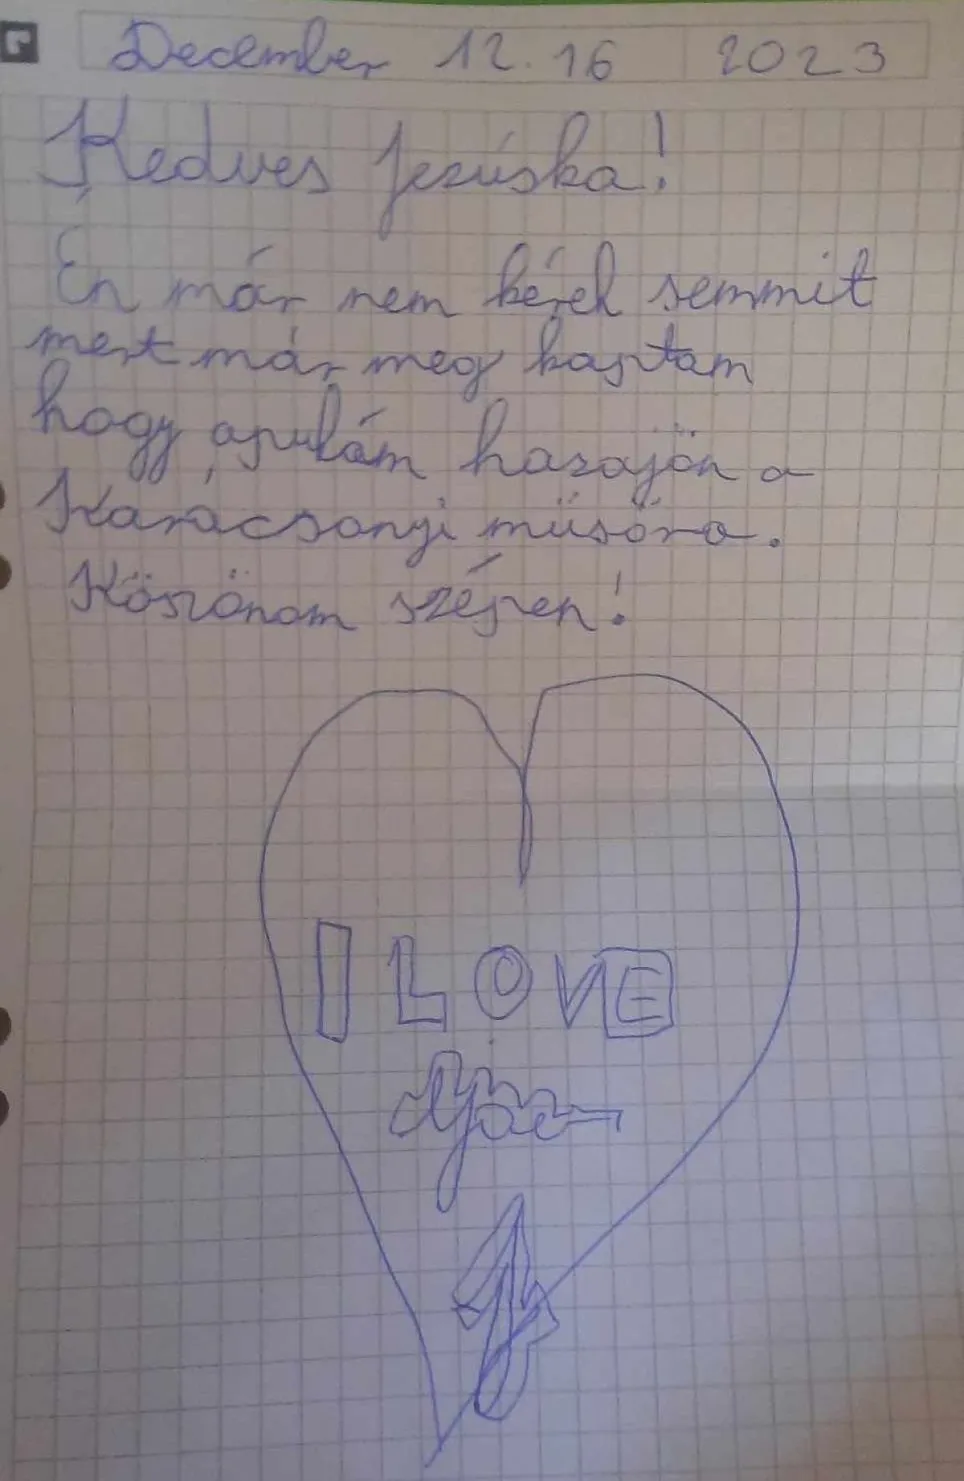 December 12.16 2023
Kedves Jezúska!
Én már nem kérek semmit
mert már meg kaptam
hogy apukám hazajön a
Karácsonyi műsőra.
Köszönöm szépen!
I LOVE
Apa